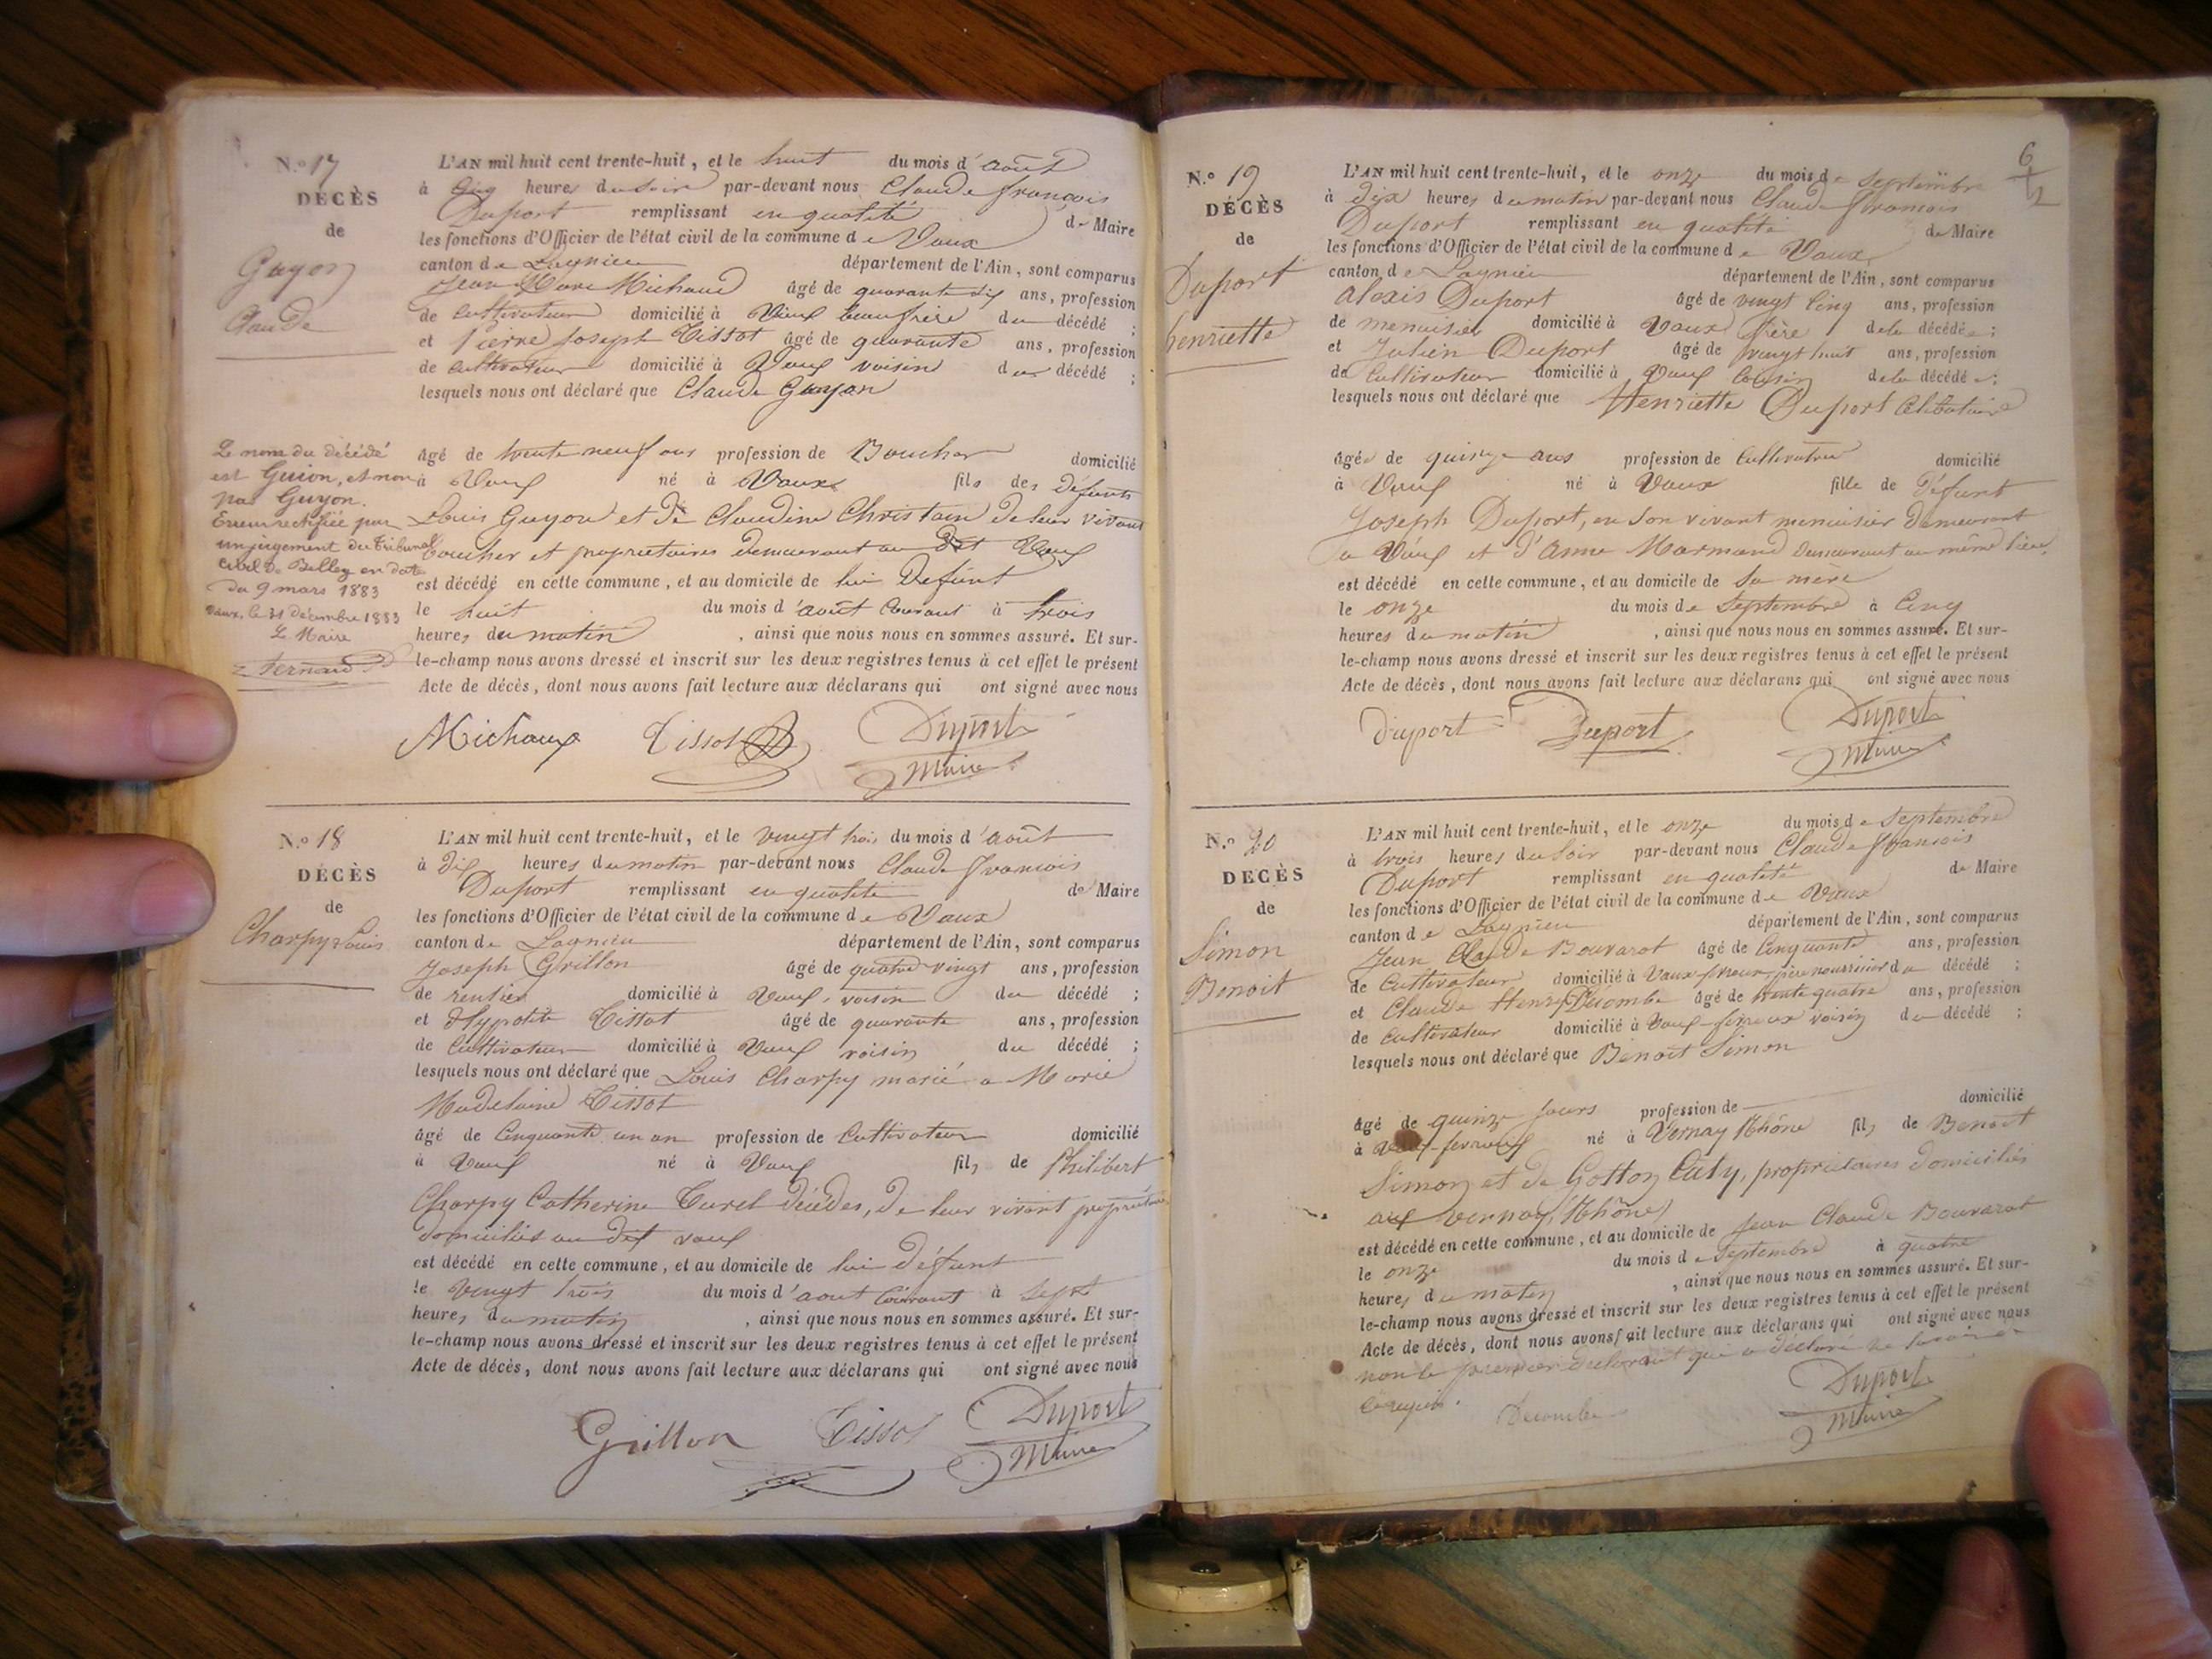 N.º 17
DÉCÈS
de
Guyon
Claude
L'AN mil huit cent trente-huit, et le huit du mois d'août
à cinq heures du soir par-devant nous Claude françois
Duport remplissant en qualité de Maire
les fonctions d'Officier de l'état civil de la commune de Vaux
canton de Lagnieu département de l'Ain, sont comparus
Jean Marie Michaud âgé de quarante six ans, profession
de cultivateur domicilié à Vaux beau frère du décédé ;
et Pierre Joseph Tissot âgé de quarante ans, profession
de cultivateur domicilié à Vaux voisin du décédé ;
lesquels nous ont déclaré que Claude Guyon
âgé de trente neuf ans profession de Boucher domicilié
à Vaux né à Vaux fils des défunts
Louis Guyon et de Claudine Christain de leur vivant
boucher et propriétaires demeurant au dit Vaux
est décédé en cette commune, et au domicile de lui défunt
le huit du mois d'août courant à trois
heures du matin, ainsi que nous nous en sommes assuré. Et sur-
le-champ nous avons dressé et inscrit sur les deux registres tenus à cet effet le présent
Acte de décès, dont nous avons fait lecture aux déclarans qui ont signé avec nous
Michaux Tissot Duport
Maire
Le nom du décédé
est Guion, et non
pas Guyon.
Erreur rectifiée par
un jugement du Tribunal
civil de Belley en date
du 9 mars 1883
Vaux, le 31 décembre 1883
Le Maire
N.º 18
DÉCÈS
de
Charpy Louis
L'AN mil huit cent trente-huit, et le vingt trois du mois d'août
à dix heures du matin par-devant nous Claude françois
Duport remplissant en qualité de Maire
les fonctions d'Officier de l'état civil de la commune de Vaux
canton de Lagnieu département de l'Ain, sont comparus
Joseph Grillon âgé de quatre vingt ans, profession
de rentier domicilié à Vaux, voisin du décédé ;
et Hypolite Tissot âgé de quarante ans, profession
de cultivateur domicilié à Vaux voisin du décédé ;
lesquels nous ont déclaré que Louis Charpy marié a Marie
Madelaine Tissot
âgé de cinquante un an profession de cultivateur domicilié
à Vaux né à Vaux fils de Philibert
Charpy Catherine Curel décédés, de leur vivant propriétaires
domiciliés au dit vaux
est décédé en cette commune, et au domicile de lui défunt
le vingt trois du mois d'aout courant à sept
heures du matin, ainsi que nous nous en sommes assuré. Et sur-
le-champ nous avons dressé et inscrit sur les deux registres tenus à cet effet le présent
Acte de décès, dont nous avons fait lecture aux déclarans qui ont signé avec nous
Grillon Tissot Duport
Maire
6
12
N.º 19
DÉCÈS
de
Duport
henriette
L'AN mil huit cent trente-huit, et le onze du mois de septembre
à dix heures du matin par-devant nous Claude françois
Duport remplissant en qualité de Maire
les fonctions d'Officier de l'état civil de la commune de Vaux
canton de Lagnieu département de l'Ain, sont comparus
Alexis Duport âgé de vingt cinq ans, profession
de menuisier domicilié à Vaux frère de la décédée ;
et Julien Duport âgé de vingt huit ans, profession
de cultivateur domicilié à Vaux cousin de la décédée ;
lesquels nous ont déclaré que Henriette Duport célibataire
âgée de quinze ans profession de cultivatrice domicilié
à Vaux né à Vaux fille de défunt
Joseph Duport, en son vivant menuisier demeurant
a Vaux et d'anne Marmand demeurant au même lieu,
est décédé en cette commune, et au domicile de sa mère
le onze du mois de septembre à cinq
heures du matin, ainsi que nous nous en sommes assuré. Et sur-
le-champ nous avons dressé et inscrit sur les deux registres tenus à cet effet le présent
Acte de décès, dont nous avons fait lecture aux déclarans qui ont signé avec nous
Duport Duport Duport
Maire
N.º 20
DECÈS
de
Simon
Benoit
L'AN mil huit cent trente-huit, et le onze du mois de septembre
à trois heures du soir par-devant nous Claude françois
Duport remplissant en qualité de Maire
les fonctions d'Officier de l'état civil de la commune de Vaux
canton de Lagnieu département de l'Ain, sont comparus
Jean Claude Bouvarot âgé de cinquante ans, profession
de cultivateur domicilié à Vaux père nourricier du décédé ;
et Claude Henry Decombe âgé de trente quatre ans, profession
de cultivateur domicilié à Vaux voisin du décédé ;
lesquels nous ont déclaré que Benoit Simon
âgé de quinze jours profession de domicilié
à né à Vernay Rhône fils de Benoit
Simon et de Gotton propriétaires domiciliés
au vernay (Rhône)
est décédé en cette commune, et au domicile de Jean Claude Bouvarot
le onze du mois de septembre à quatre
heures du matin, ainsi que nous nous en sommes assuré. Et sur-
le-champ nous avons dressé et inscrit sur les deux registres tenus à cet effet le présent
Acte de décès, dont nous avons fait lecture aux déclarans qui ont signé avec nous
non le premier déclarant qui a déclaré ne savoir
Decombe Duport
Maire